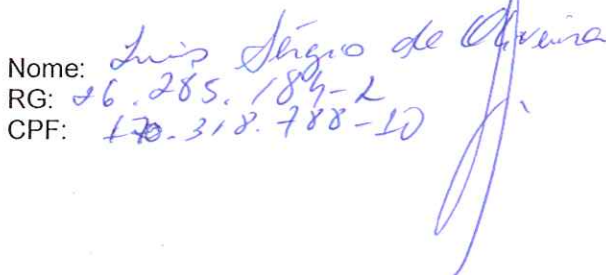 Nome: Luis Sérgio de Oliveira
RG: 26.285.184-2
CPF: 170.318.788-10